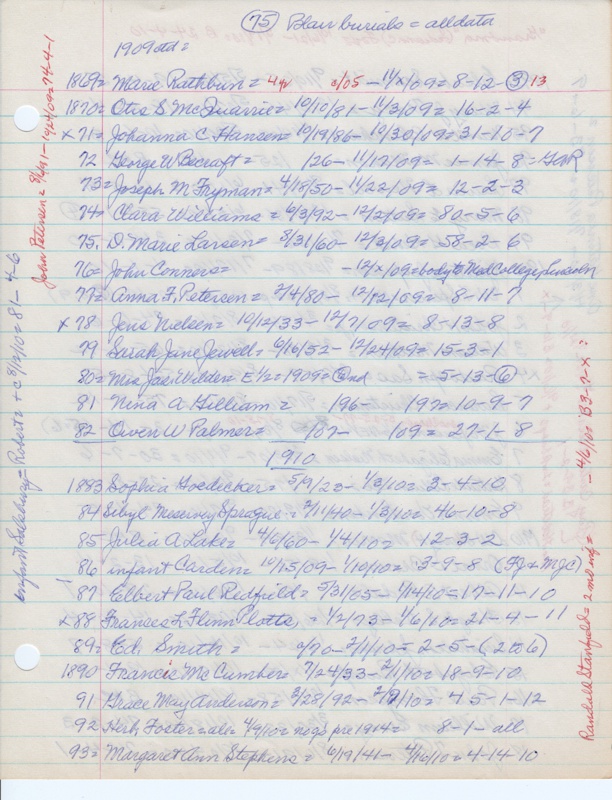 (75) Blair burials = all data
1909 std =
1869 = Marie Rathburn = 4yr c/05 - 11/x/09 = 8-12-(3) 13
1870 = Otis S McQuarrie = 10/10/81 - 11/3/09 = 16-2-4
x 71 = Johanna C Hansen = 10/19/86 - 10/30/09 = 31-10-7
72 George W Becraft = /26 - 11/17/09 = 1-14-8 = GAR
73 = Joseph M Fryman = 4/18/50 - 11/22/09 = 12-2-3
74 = Clara Williams = 6/3/92 - 12/2/09 = 80-5-6
75. D. Marie Larsen = 8/31/60 - 12/3/09 = 58-2-6
76 = John Connors = - 12/x/09 = body to Med College, Lincoln
77 = Anna F. Petersen = 2/4/80 - 12/12/09 = 8-11-7
x 78 Jens Nielsen = 10/12/33 - 12/7/09 = 8-13-8
79 Sarah Jane Jewell = 6/16/52 - 12/24/09 = 15-3-1
80 = Mrs Jas. Wilden E 1/2 = 1909 = (2)nd = 5-13-(6)
81 Nina A Gilliam = 196 - 197 = 10-9-7
82 Owen W Palmer = 107 - 109 = 27-1-8
1910
1883 Sophia Hoedicker = 5/9/23 - 1/3/10 = 3-4-10
84 Sibyl Meservy Sprague = 2/11/40 - 1/3/10 = 46-10-8
85 Julia A Lake = 4/6/60 - 1/4/10 = 12-3-2
86 infant Carden = 10/15/09 - 1/10/10 = 3-9-8 (FJ & MJC)
87 Elbert Paul Redfield = 5/31/65 - 1/14/10 = 17-11-10
x 88 Frances L Flinn Plotts, = 1/2/73 - 1/6/10 = 21-4-11
89 = Ed. Smith = 0/70 - 2/1/10 = 2-5-(2 to 6)
1890 Francis McCumber = 7/24/33 - 2/1/10 = 18-9-10
91 Grace May Anderson = 2/28/92 - /10 = 45-1-12
92 Herb Foster = ali = 4/9/10 = no gs pre 1914 = 8-1-all
93 = Margaret Ann Stephens = 6/19/41 - 4/16/10 = 4-14-10
John Petersen = 8/6/41 - 10/24/09 = 74-4-1
infant Salsbury = Robert + c 8/12/10 = 81-4-6
Randall Stanfield = 2 ms inf = - 4/6/10 = B3-7-x ?